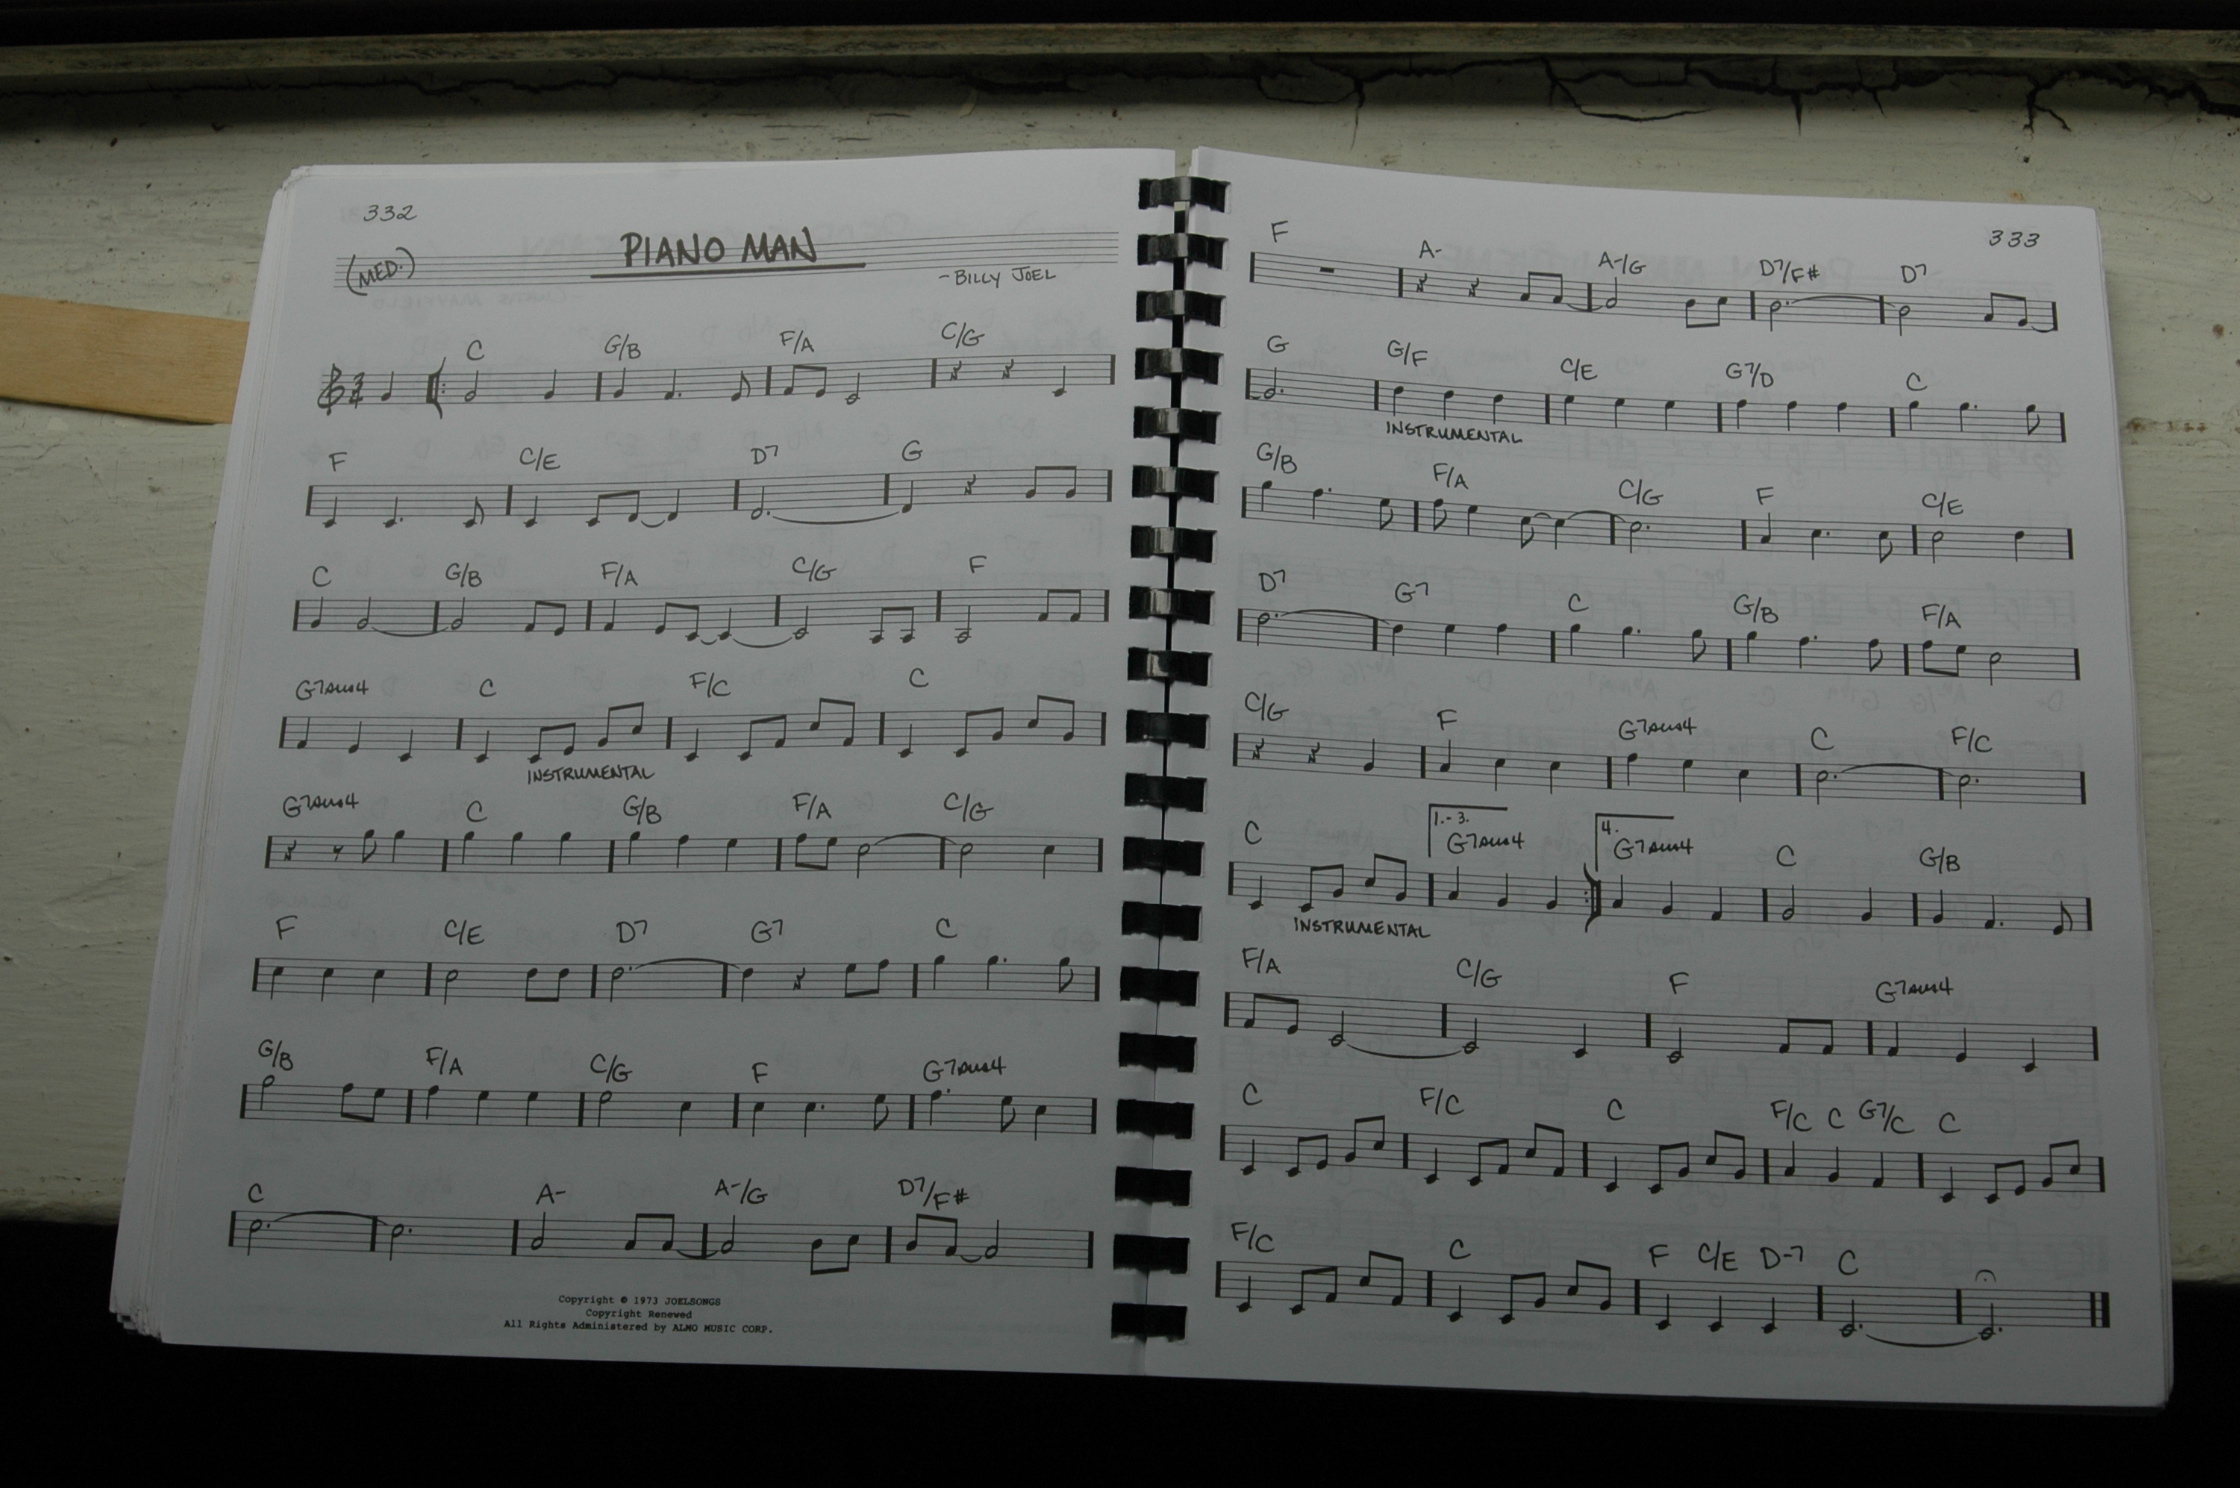 332
PIANO MAN
(MED.)
-BILLY JOEL
C G/B F/A C/G
F C/E D7 G
C G/B F/A C/G F
G7sus4 C F/C C
INSTRUMENTAL
G7sus4 C G/B F/A C/G
F C/E D7 G7 C
G/B F/A C/G F G7sus4
C A- A-/G D7/F#
Copyright © 1973 JOELSONGS
Copyright Renewed
All Rights Administered by ALMO MUSIC CORP.
333
F A- A-/G D7/F# D7
G G/F C/E G7/D C
INSTRUMENTAL
G/B F/A C/G F C/E
D7 G7 C G/B F/A
C/G F G7sus4 C F/C
1.-3. 4.
C G7sus4 G7sus4 C G/B
INSTRUMENTAL
F/A C/G F G7sus4
C F/C C F/C C G7/C C
F/C C F C/E D-7 C